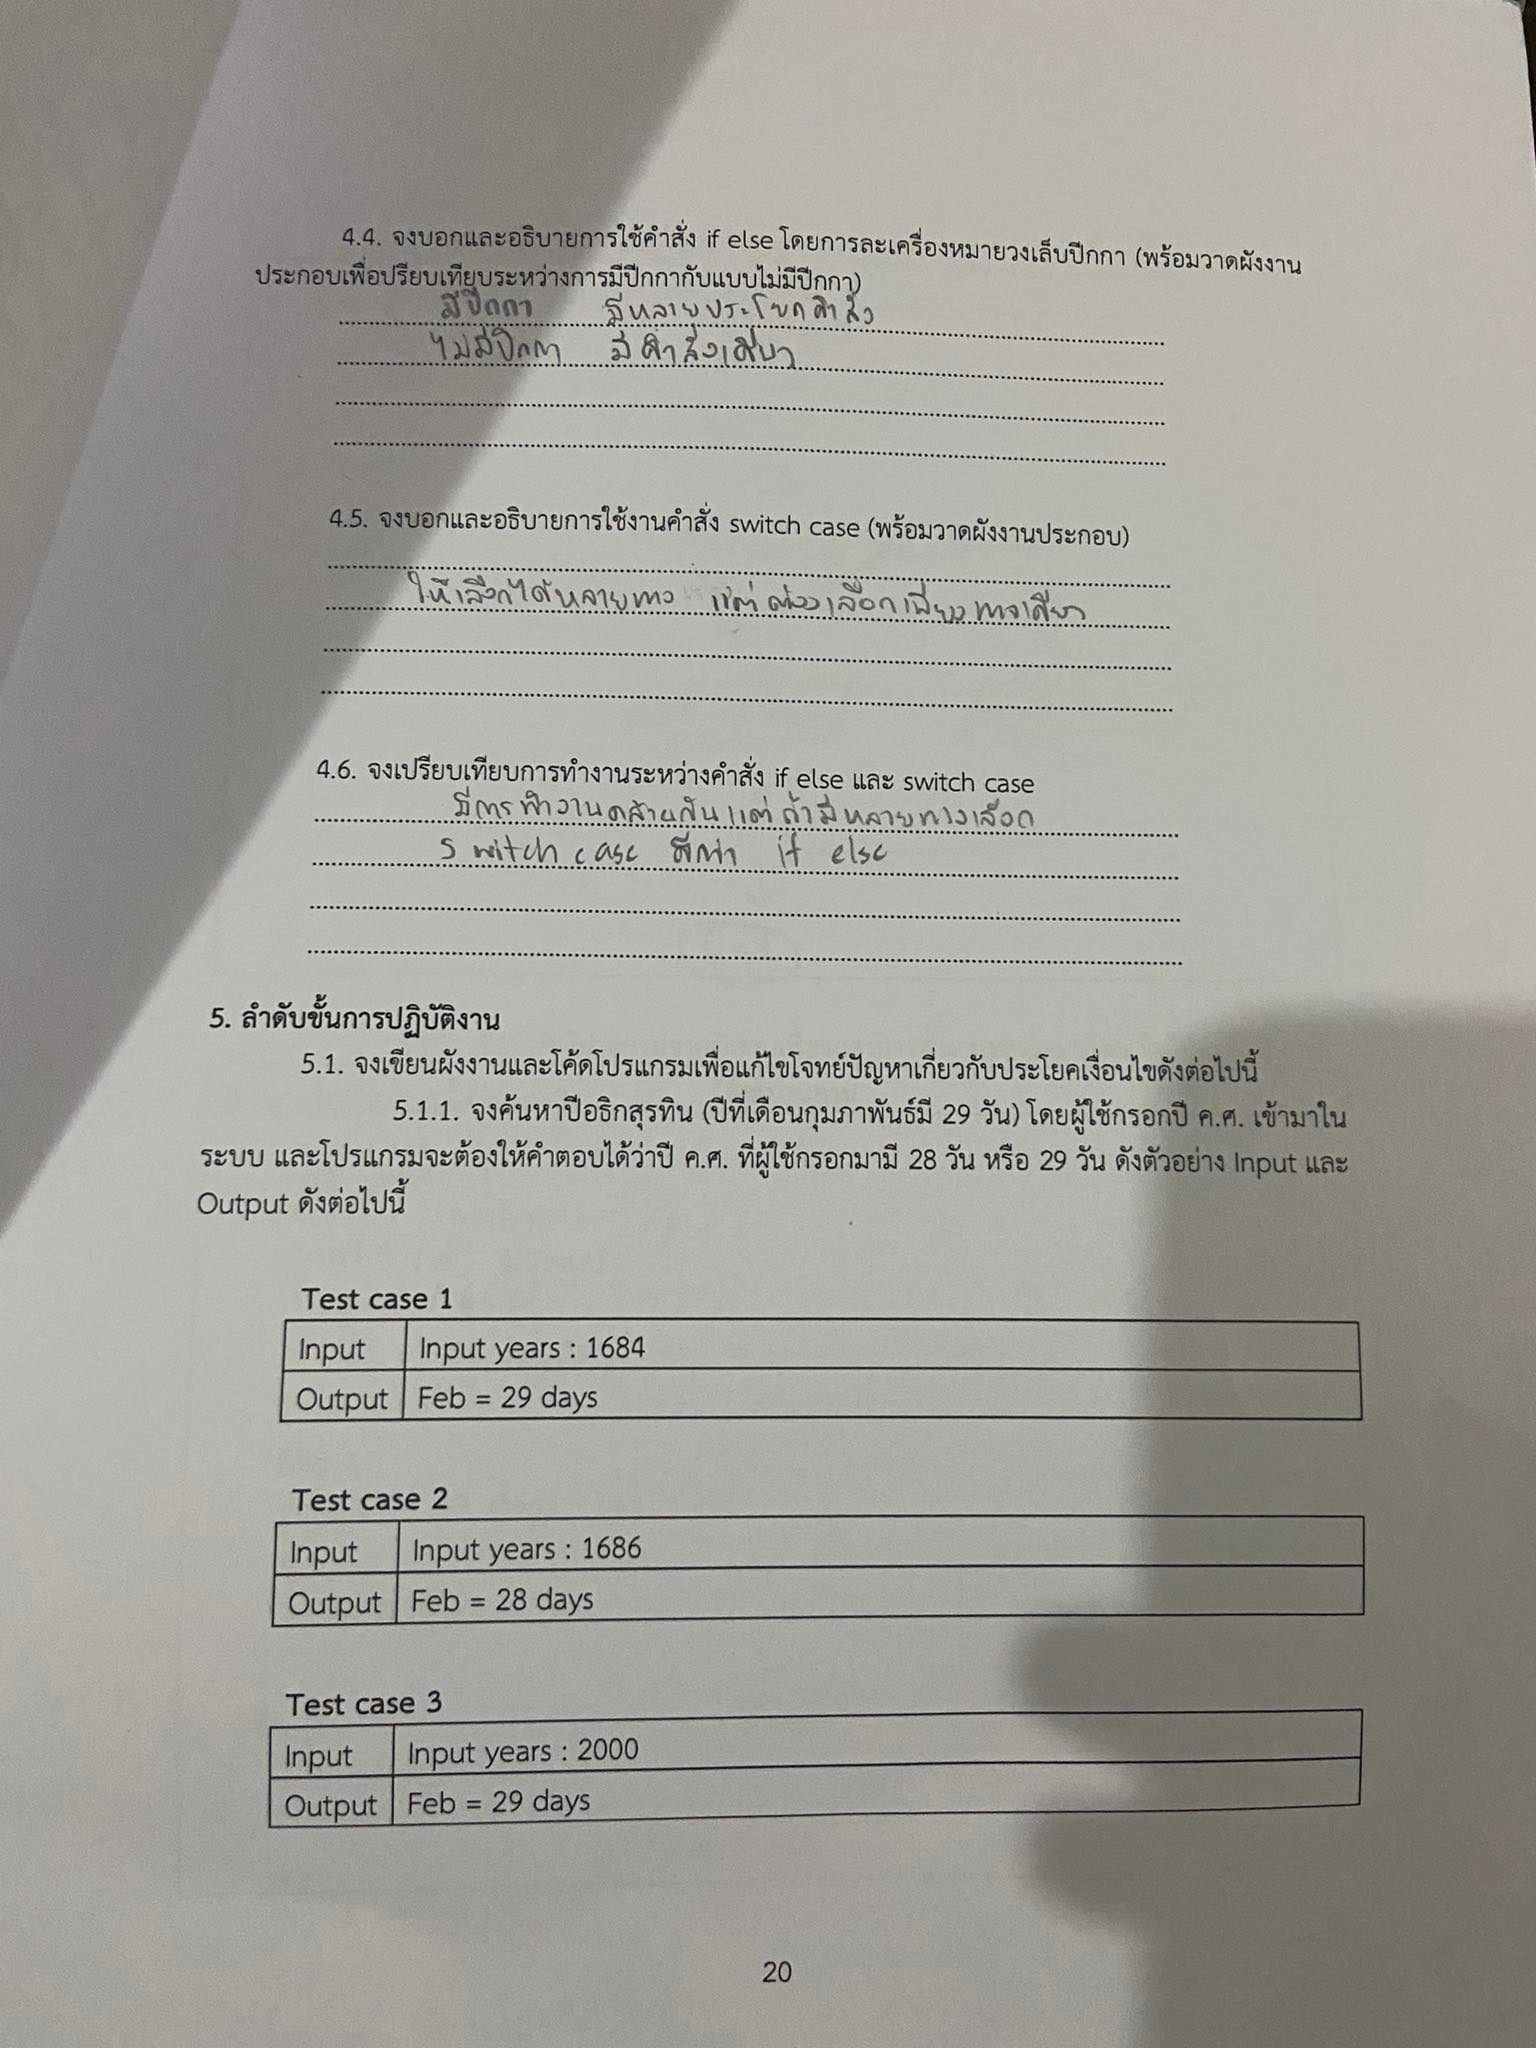 4.4. จงบอกและอธิบายการใช้คำสั่ง if else โดยการละเครื่องหมายวงเล็บปีกกา (พร้อมวาดผังงาน
ประกอบเพื่อปรียบเทียบระหว่างการมีปีกกากับแบบไม่มีปีกกา)
มีปีกกา มีหลายประโยคคำสั่ง
ไม่มีปีกกา มีคำสั่งเดียว
4.5. จงบอกและอธิบายการใช้งานคำสั่ง switch case (พร้อมวาดผังงานประกอบ)
ให้เลือกได้หลายทาง แต่ต้องเลือกเพียงทางเดียว
4.6. จงเปรียบเทียบการทำงานระหว่างคำสั่ง if else และ switch case
มีการทำงานคล้ายกันแต่ถ้ามีหลายทางเลือก
switch case ดีกว่า if else
5. ลำดับขั้นการปฏิบัติงาน
5.1. จงเขียนผังงานและโค้ดโปรแกรมเพื่อแก้ไขโจทย์ปัญหาเกี่ยวกับประโยคเงื่อนไขดังต่อไปนี้
5.1.1. จงค้นหาปีอธิกสุรทิน (ปีที่เดือนกุมภาพันธ์มี 29 วัน) โดยผู้ใช้กรอกปี ค.ศ. เข้ามาใน
ระบบ และโปรแกรมจะต้องให้คำตอบได้ว่าปี ค.ศ. ที่ผู้ใช้กรอกมามี 28 วัน หรือ 29 วัน ดังตัวอย่าง Input และ
Output ดังต่อไปนี้
Test case 1
Input Input years : 1684
Output Feb = 29 days
Test case 2
Input Input years : 1686
Output Feb = 28 days
Test case 3
Input Input years : 2000
Output Feb = 29 days
20